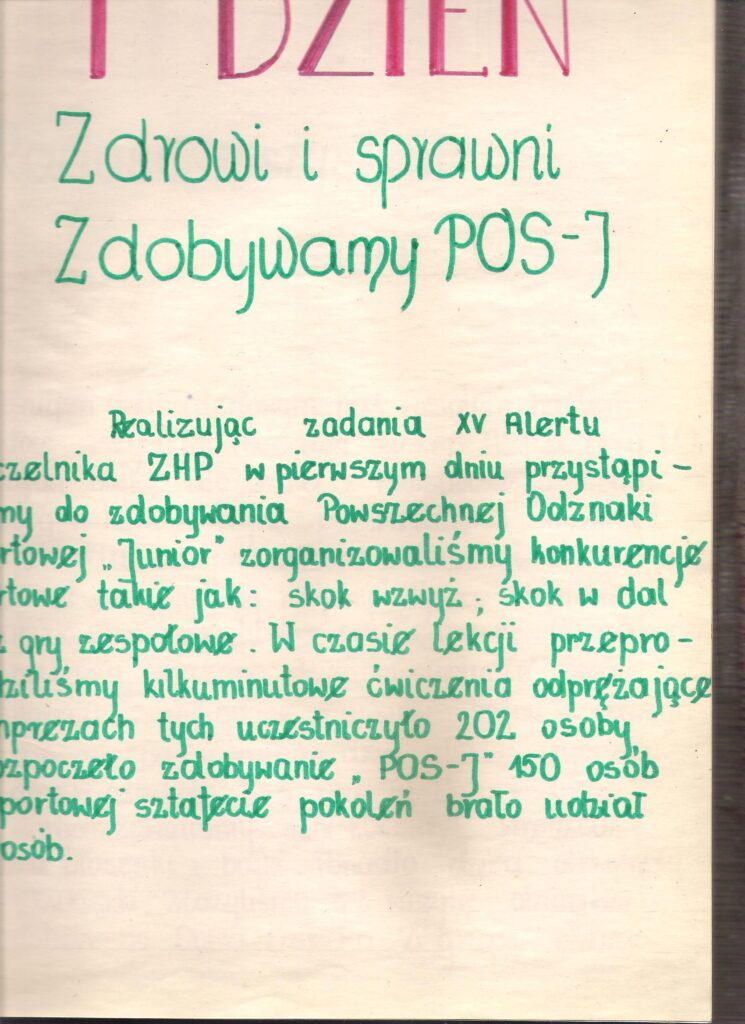 I DZIEŃ
Zdrowi i sprawni
Zdobywamy POS-J
Realizując zadania XV Alertu
czelnika ZHP w pierwszym dniu przystąpi-
my do zdobywania Powszechnej Odznaki
rtowej „Junior" zorganizowaliśmy konkurencje
rtowe takie jak: skok wzwyż; skok w dal
z gry zespołowe. W czasie lekcji przepro-
ziliśmy kilkuminutowe ćwiczenia odprężające
mprezach tych uczestniczyło 202 osoby,
ozpoczeło zdobywanie „POS-J" 150 osób
portowej sztafecie pokoleń brało udział
osób.